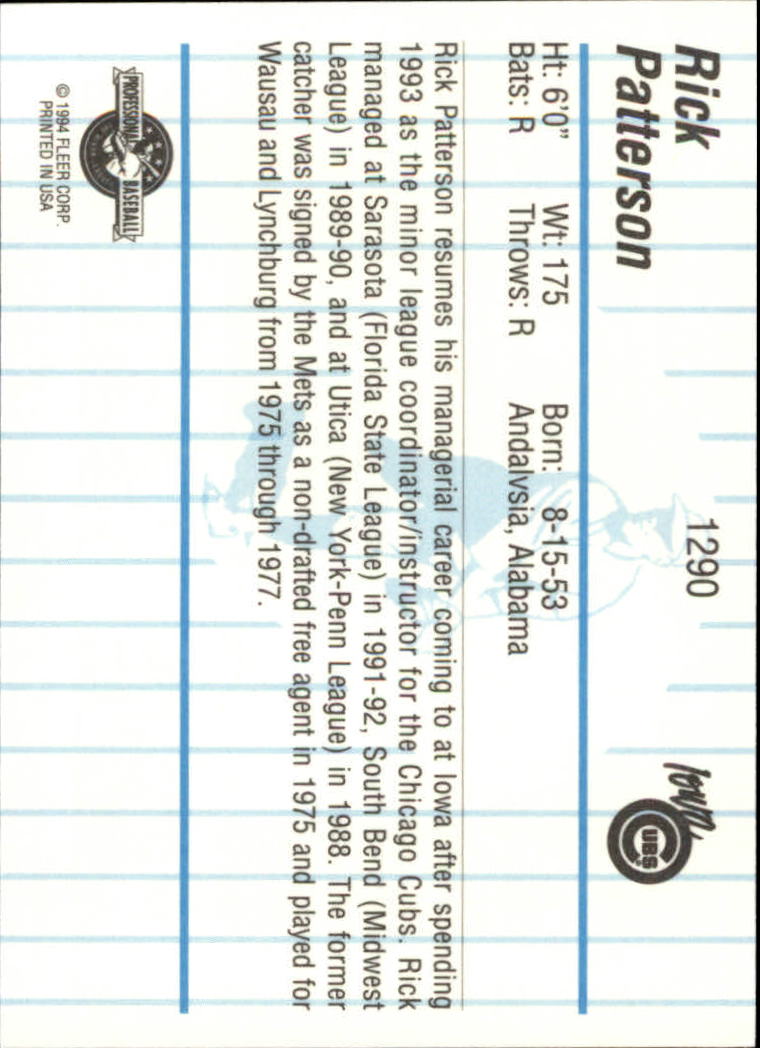 Rick
Patterson
1290
Iowa
CUBS
Ht: 6'0" Wt: 175 Born: 8-15-53
Bats: R Throws: R Andalvsia, Alabama
Rick Patterson resumes his managerial career coming to at Iowa after spending
1993 as the minor league coordinator/instructor for the Chicago Cubs. Rick
managed at Sarasota (Florida State League) in 1991-92, South Bend (Midwest
League) in 1989-90, and at Utica (New York-Penn League) in 1988. The former
catcher was signed by the Mets as a non-drafted free agent in 1975 and played for
Wausau and Lynchburg from 1975 through 1977.
PROFESSIONAL BASEBALL
© 1994 FLEER CORP.
PRINTED IN USA